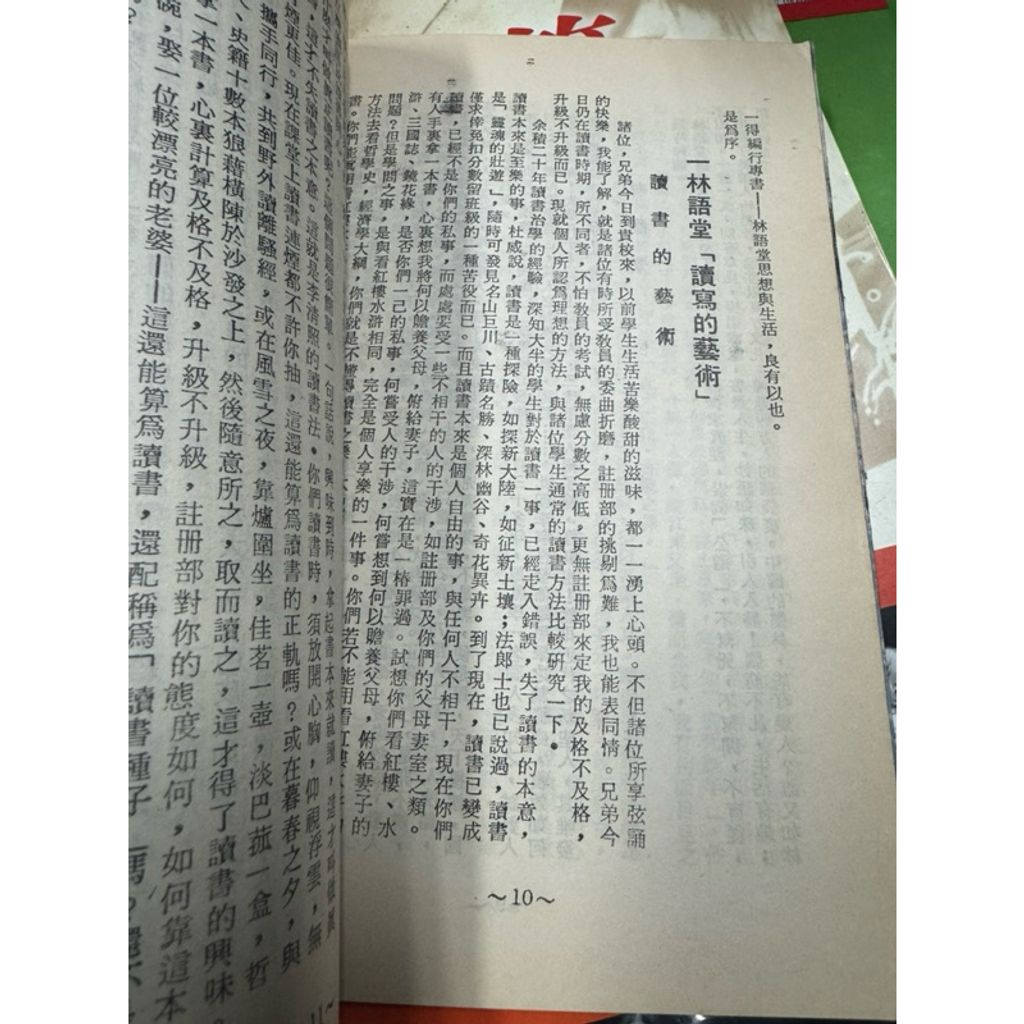 一得編行專書——林語堂思想與生活，良有以也。
是爲序。
一林語堂「讀寫的藝術」
讀書的藝術
諸位，兄弟今日到貴校來，以前學生生活苦樂酸甜的滋味，都一一湧上心頭。不但諸位所享弦誦
的快樂，我能了解，就是諸位有時所受教員的委曲折磨，註册部的挑剔爲難，我也能表同情。兄弟今
日仍在讀書時期，所不同者，不怕教員的考試，無慮分數之高低，更無註册部來定我的及格不及格，
升級不升級而已。現就個人所認爲理想的方法，與諸位學生通常的讀書方法比較研究一下。
余積二十年讀書治學的經驗，深知大半的學生對於讀書一事，已經走入錯誤，失了讀書的本意，
讀書本來是至樂的事，杜威說，讀書是一種探險，如探新大陸，如征新土壤；法郎士也已說過，讀書
是「靈魂的壯遊」，隨時可發見名山巨川、古蹟名勝、深林幽谷、奇花異卉。到了現在，讀書已變成
僅求倖免扣分數留班級的一種苦役而已。而且讀書本來是個人自由的事，與任何人不相干，現在你們
讀書，已經不是你們的私事，而處處要受一些不相干的人的干涉，如註册部及你們的父母妻室之類。
有人手裏拿一本書，心裏想我將何以贍養父母，俯給妻子，這實在是一樁罪過。試想你們看紅樓、水
滸、三國誌、鏡花緣，是否你們一己的私事，何嘗受人的干涉，何嘗想到何以贍養父母，俯給妻子的
問題？但是學問之事，是與看紅樓水滸相同，完全是個人享樂的一件事。你們若不能用看紅樓
方法去看哲學史，經濟學大綱，你們就是不懂得讀書之樂
～10～
這才不失讀書之本意。這就是李清照的讀書法。你們讀書時，須放開心胸，仰視浮雲，無
煙更佳。現在課堂上讀書連煙都不許你抽，這還能算爲讀書的正軌嗎？或在暮春之夕，與
攜手同行，共到野外讀離騷經，或在風雪之夜，靠爐圍坐，佳茗一壺，淡巴菰一盒，哲
、史籍十數本狼藉橫陳於沙發之上，然後隨意所之，取而讀之，這才得了讀書的興味。
拿一本書，心裏計算及格不及格，升級不升級，註册部對你的態度如何，如何靠這本
碗，娶一位較漂亮的老婆——這還能算爲讀書，還配稱爲「讀書種子」嗎？
11～